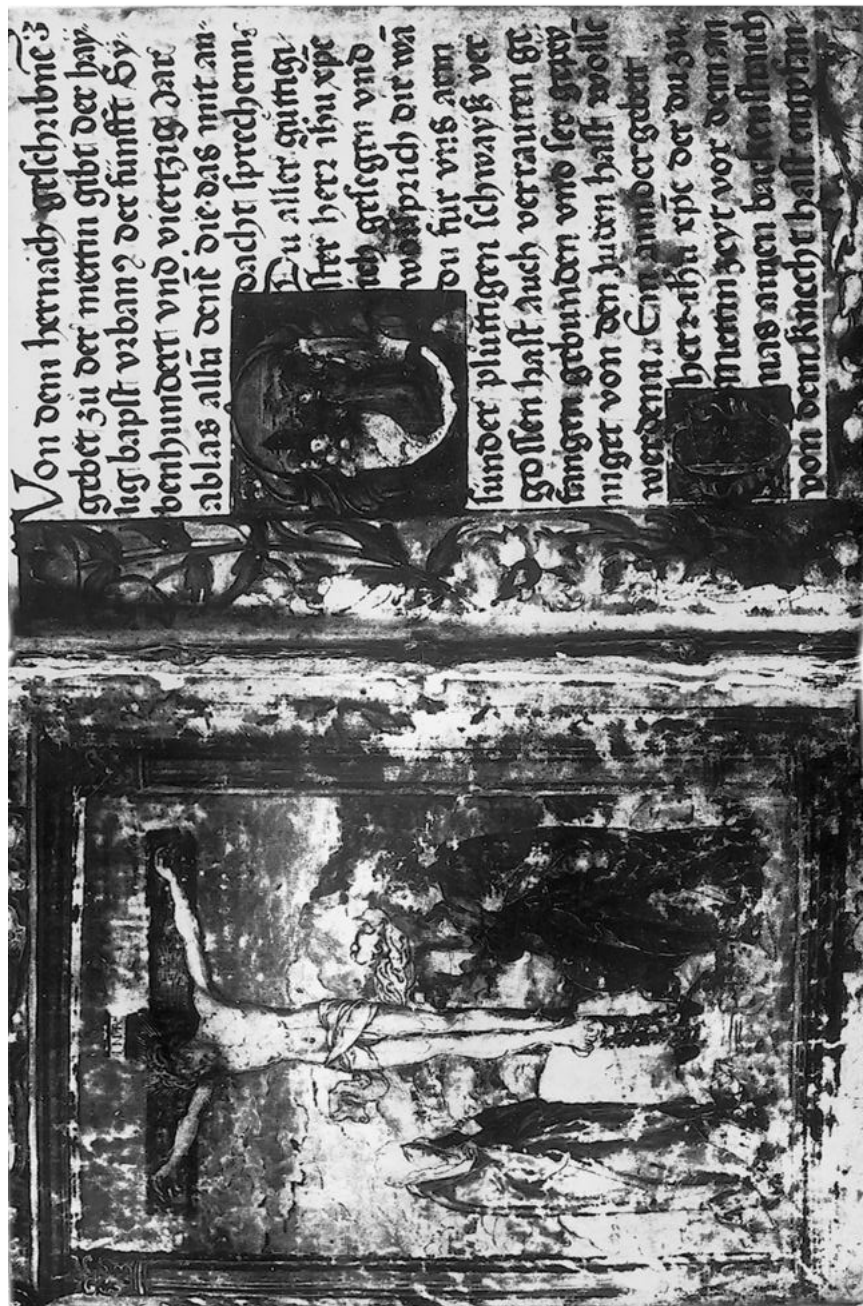 Von dem hernach geschribnē 3
gebet zu der mettin gibt der hay-
lig bapst vrban9 der funfft Sy-
benhundert vnd viertzig Jare
ablas allñ denē die das mit an-
dacht sprechenn,
Du aller gütigi
ster herr ihū xp̄e
gesegen vnd
sprich dir wā
du für vns arm
sünder plüttigen schwayß ver
gossen hast auch verratten ge
fangen gebunden vnd ser
niget von den Juden hast wolle
werdenn, Ein annder gebett
herr ihū xp̄e der du zu
mettin zeyt vor dem an
nas ainen backenstraich
von dem knecht hast entpfan-
INRI